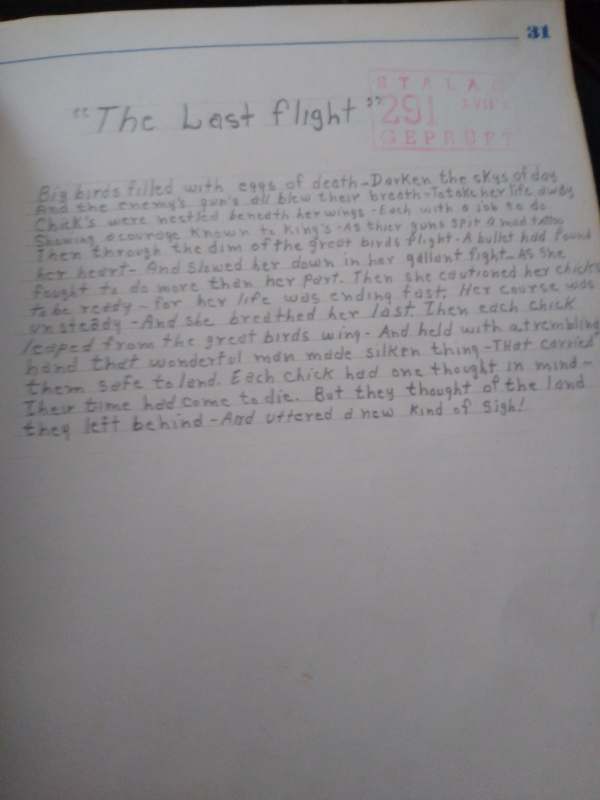 31
STALAG
291 XVII
GEPRÜFT
"The Last flight"
Big birds filled with eggs of death-Darken the skys of day
And the enemy's gun's all blew their breath-To take her life away
Chick's were nestled beneath her wings-Each with a job to do
Showing a courage known to King's-As thier guns spit a mad tattoo
Then through the dim of the great birds flight-A bullet had found
her heart-And slowed her down in her gallant fight-As she
fought to do more than her part. Then she cautioned her chick's
to be ready-for her life was ending fast, Her course was
unsteady-And she breathed her last Then each chick
leaped from the great birds wing-And held with a trembling
hand that wonderful man made silken thing-That carried
them safe to land. Each chick had one thought in mind-
Their time had come to die. But they thought of the land
they left behind-And uttered a new kind of sigh!